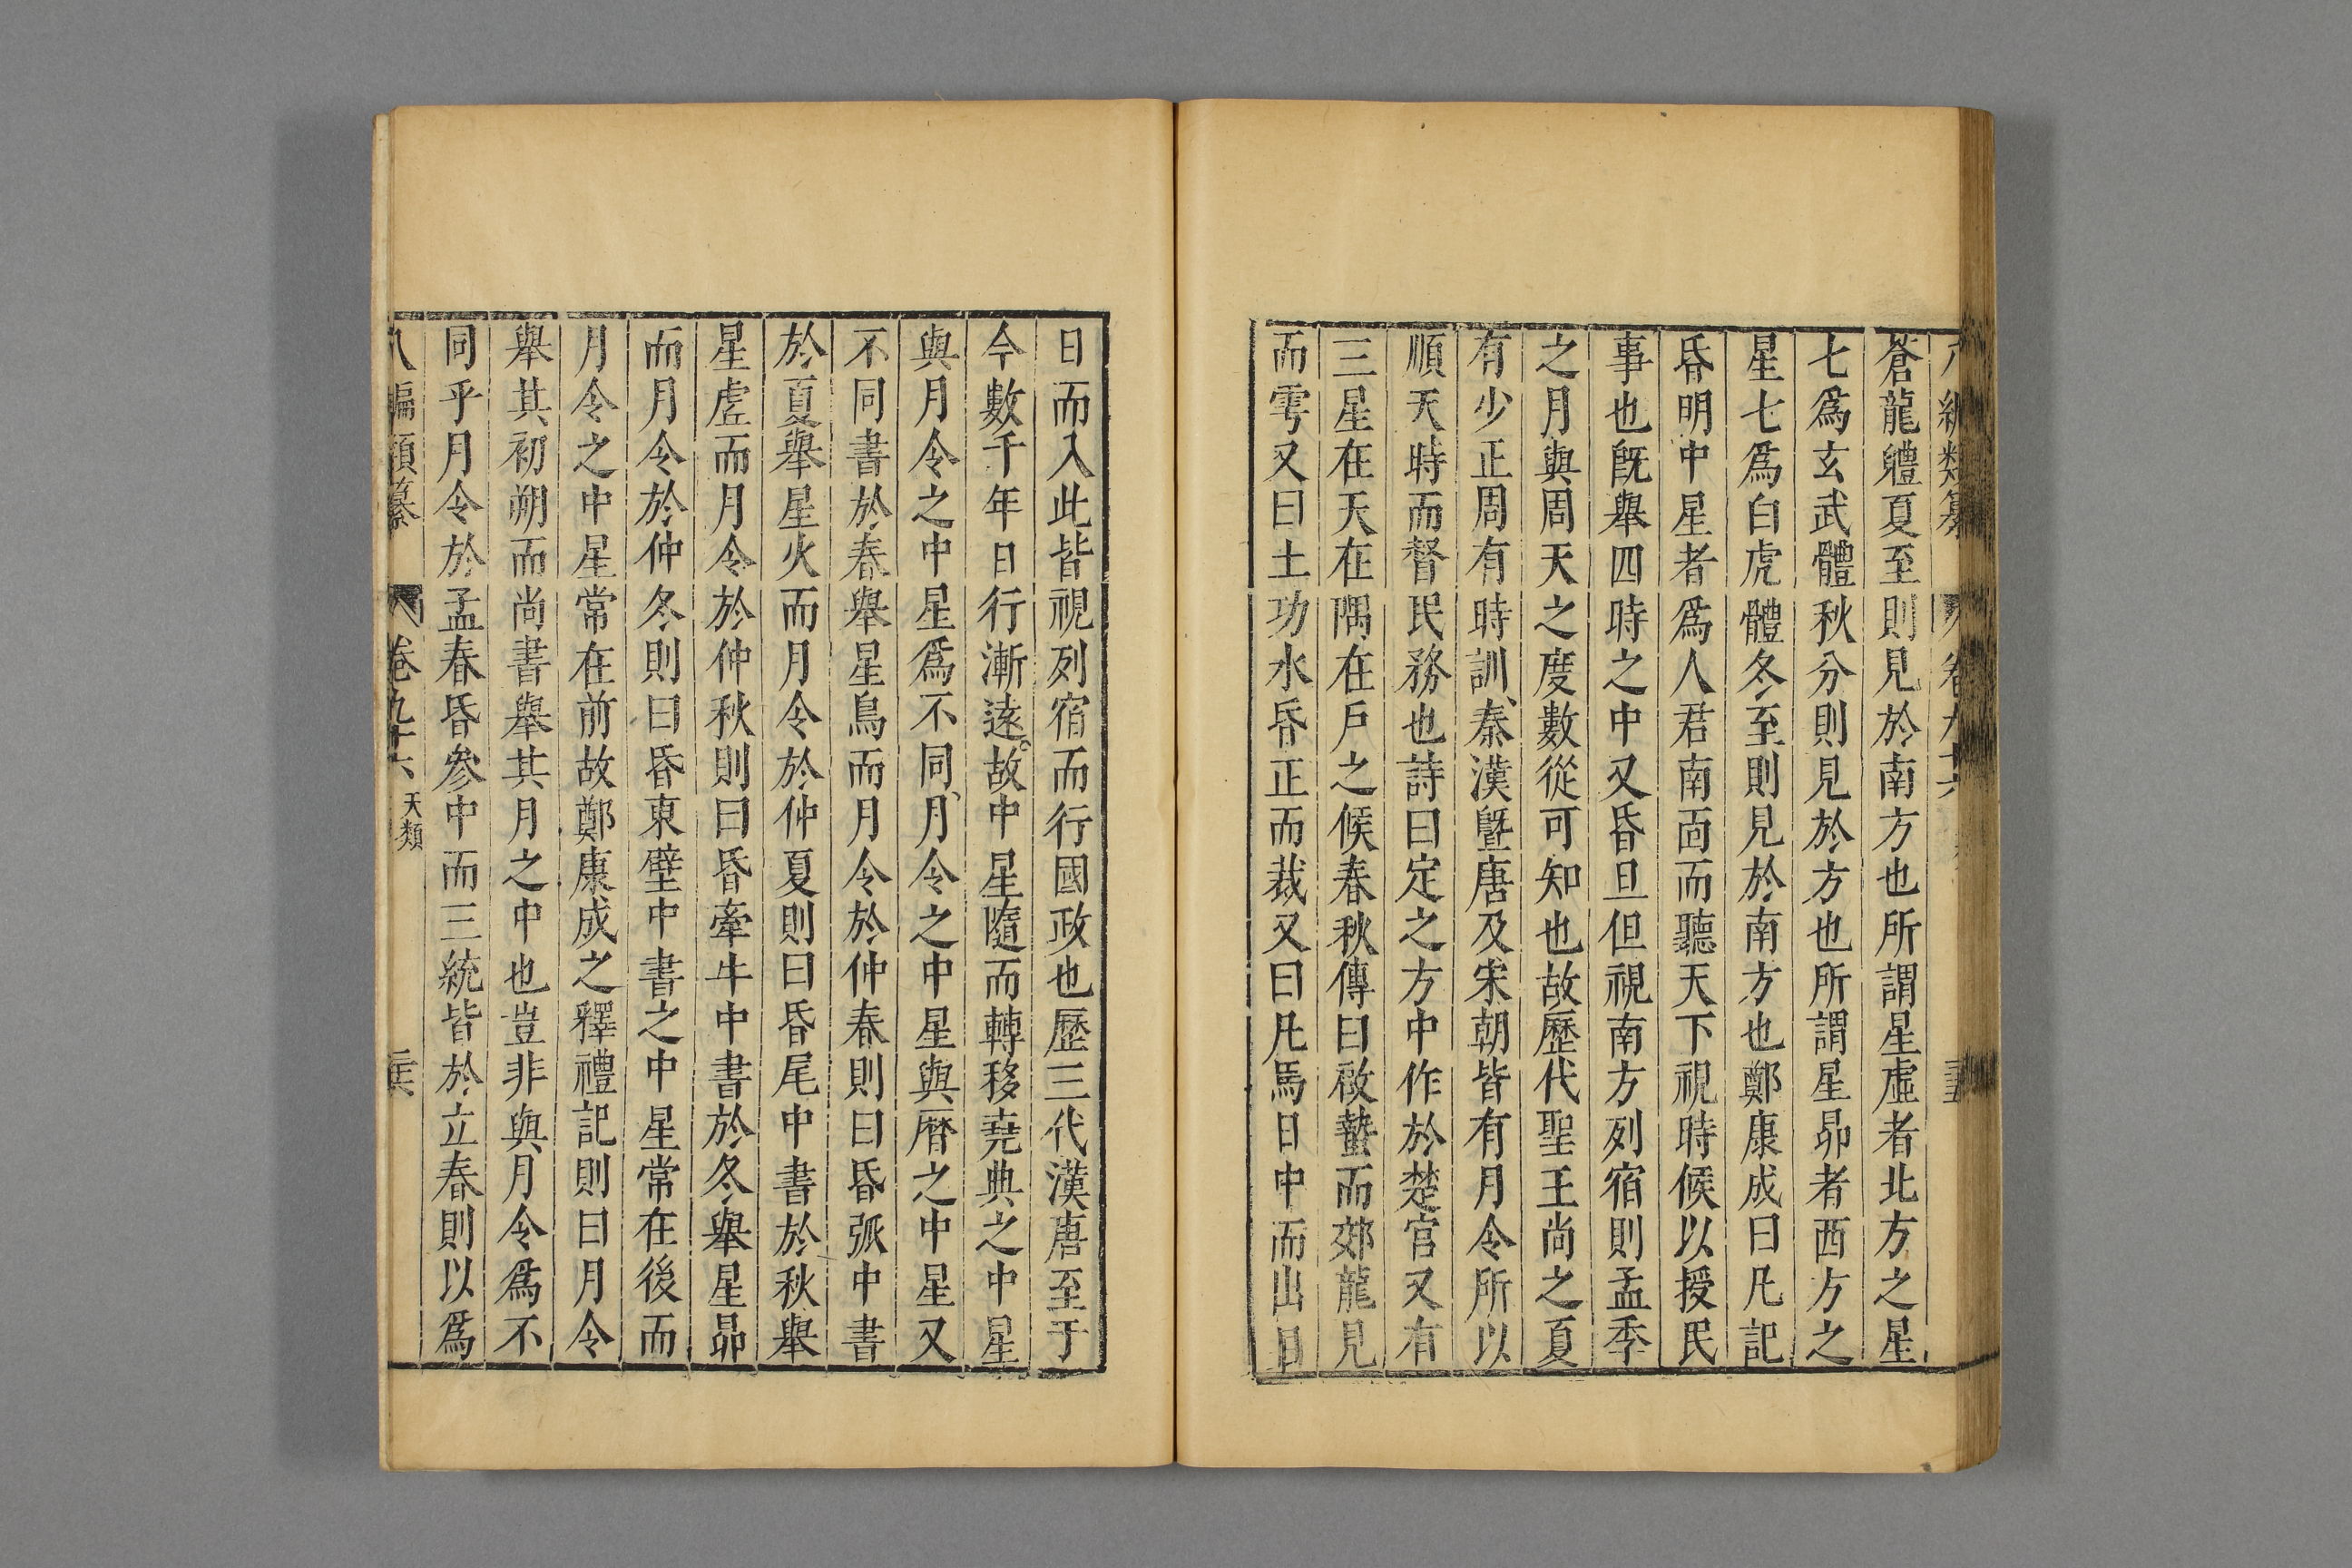 八編類纂 卷九十六
蒼龍軆夏至則見於南方也所謂星虛者北方之星
七爲玄武體秋分則見於方也所謂星昴者西方之
星七爲白虎體冬至則見於南方也鄭康成曰凡記
昏明中星者爲人君南面而聽天下視時候以授民
事也旣舉四時之中又昏旦但視南方列宿則孟季
之月與周天之度數從可知也故歷代聖王尚之夏
有少正周有時訓、秦漢曁唐及宋朝皆有月令所以
順天時而督民務也詩曰定之方中作於楚宮又有
三星在天在隅在戶之候春秋傳曰啟蟄而郊龍見
而雩又曰土功水昏正而裁又曰凡馬日中而出日
日而入此皆視列宿而行國政也歷三代漢唐至于
今數千年日行漸遠。故中星隨而轉移堯典之中星
與月令之中星爲不同、月令之中星與曆之中星又
不同書於春舉星鳥而月令於仲春則曰昏弧中書
於夏舉星火而月令於仲夏則曰昏尾中書於秋舉
星虛而月令於仲秋則曰昏牽牛中書於冬舉星昴
而月令於仲冬則曰昏東壁中書之中星常在後而
月令之中星常在前故鄭康成之釋禮記則曰月令
舉其初朔而尚書舉其月之中也豈非與月令爲不
同乎月令於孟春昏參中而三統皆於立春則以爲
八編類纂 卷九十六 天類